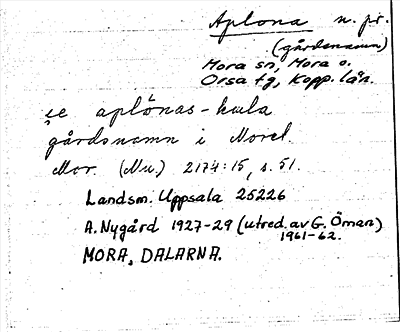 Aplona n. pr.
(gårdsnamn)
Mora sn, Mora o.
Orsa tg, Kopp. län.
se aplònas-kula
gårdsnamn i Noret.
Mor. (Nu.) 2174:15, s. 51.
Landsm. Uppsala 25226
A. Nygård 1927-29 (utred. av G. Öman)
1961-62.
MORA, DALARNA.